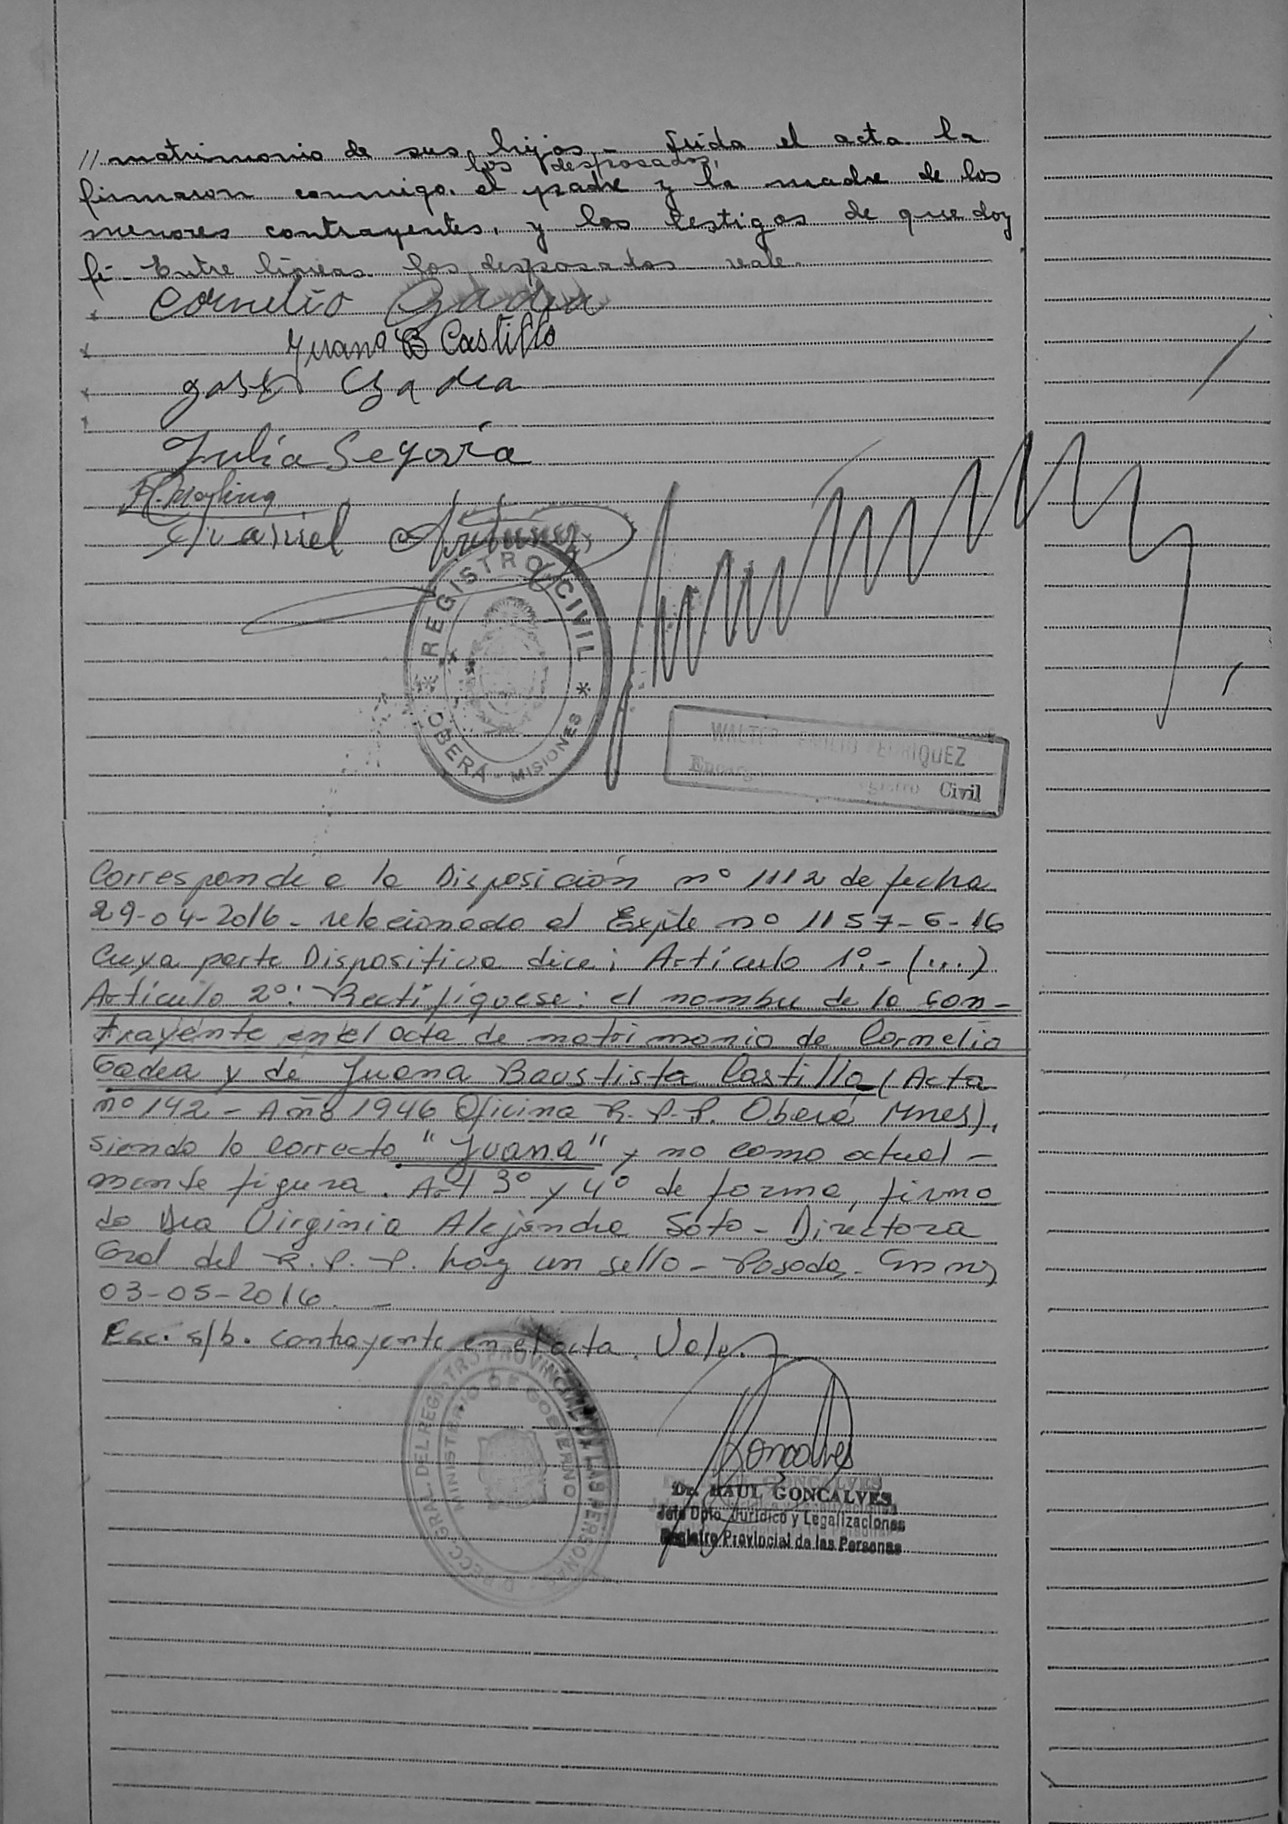 // matrimonio de sus hijos - Leida el acta la
los desposados,
firmaron conmigo, el padre y la madre de los
menores contrayentes, y los testigos de que doy
fé - Entre líneas los desposados vale.
Cornelio Gadea
Juana B Castillo
José Gadea
Julia Segovia
Daniel
REGISTRO CIVIL
OBERÁ - MISIONES
WALTER EMILIO HENRIQUEZ
Civil
Corresponde a la Disposición nº 1112 de fecha
29-04-2016 - relacionado al Expte nº 1157-G-16
Cuya parte Dispositiva dice; Artículo 1º.- (...)
Artículo 2º: Rectifíquese: el nombre de la con-
trayente en el acta de matrimonio de Cornelio
Gadea y de Juana Baustista Castillo (Acta
nº 142 - Año 1946 Oficina R.P.P. Oberá, Mnes),
siendo lo correcto "Juana" y no como actual-
mente figura. Art 3º y 4º de forma, firma
do Dra Virginia Alejandra Soto - Directora
Gral del R.P.P. hay un sello - Posadas, Mnes
03-05-2016. -
Esc. s/b. contrayente en el acta. Vale. -
GRAL. DEL REGISTRO PROVINCIAL DE LAS PERSONAS
MINISTERIO DE GOBIERNO
Goncalves
Dr. RAUL GONCALVES
Jefe Dpto. Jurídico y Legalizaciones
Registro Provincial de las Personas